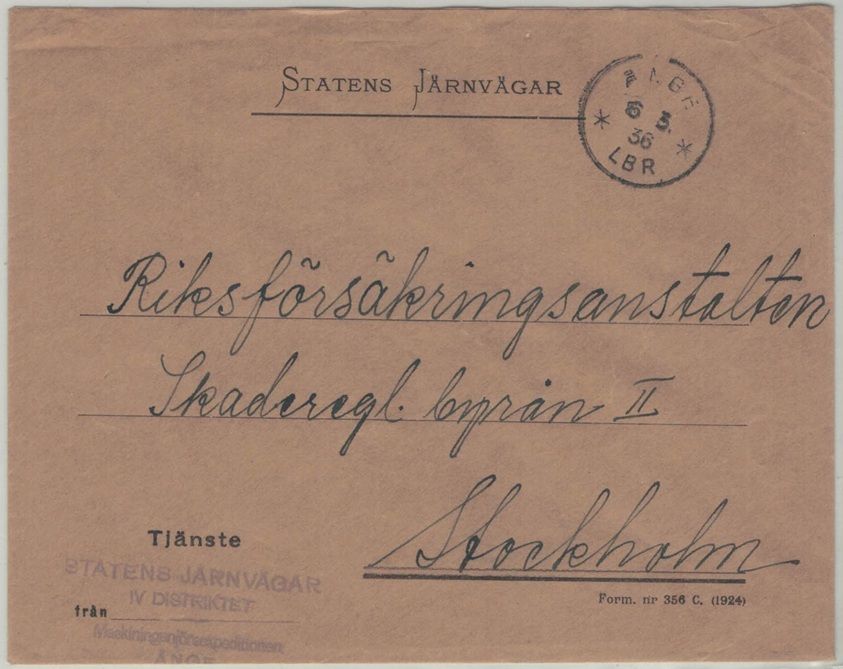 STATENS JÄRNVÄGAR
6 3
36
LBR
Riksförsäkringsanstalten
Skaderegl. byrån II
Stockholm
Tjänste
STATENS JÄRNVÄGAR
IV DISTRIKTET
från
Maskiningenjörsexpeditionen
ÅNGE
Form. nr 356 C. (1924)